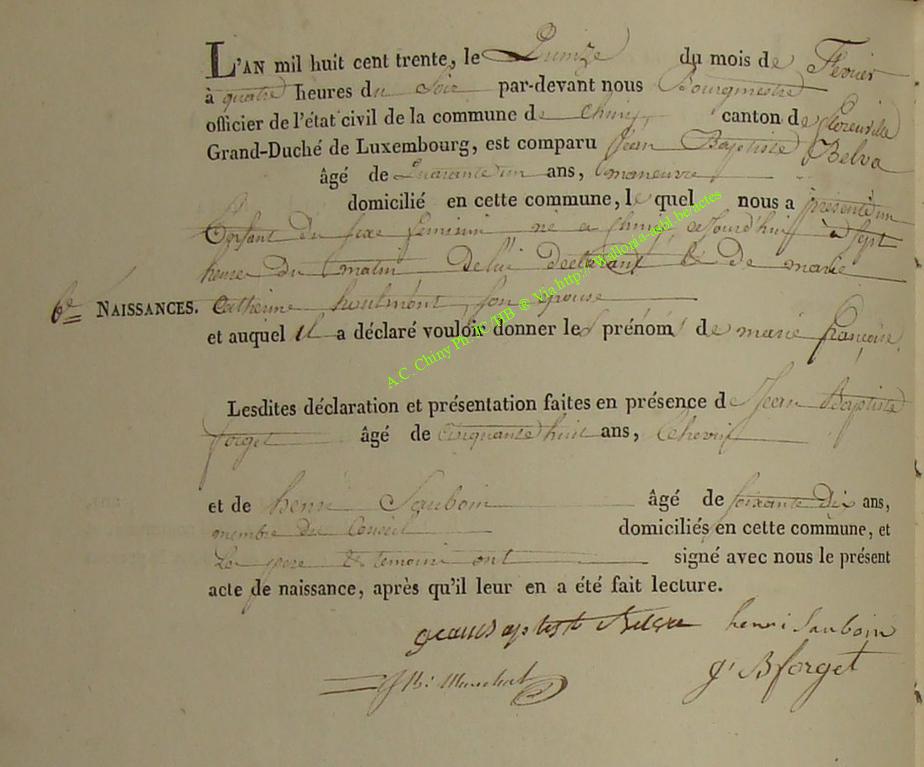 L'AN mil huit cent trente, le Quinze du mois de Fevrier
à quatre heures du Soir par-devant nous Bourgmestre
officier de l'état civil de la commune de Chiny, canton de florenville
Grand-Duché de Luxembourg, est comparu Jean Baptiste Belva
âgé de quarante un ans, maneuvre
domicilié en cette commune, le quel nous a présenté un
Enfant du sexe feminin né a Chiny, cejourd'hui à sept
heures du matin de lui declarant & de marie
6e NAISSANCES. Catherine houlmont son epouse
et auquel il a déclaré vouloir donner les prénoms de marie françoise
Lesdites déclaration et présentation faites en présence de Jean Baptiste
forget âgé de cinquante huit ans,
et de henri Sauboin âgé de soixante dix ans,
membre du Conseil domiciliés en cette commune, et
Les pere & temoins ont signé avec nous le présent
acte de naissance, après qu'il leur en a été fait lecture.
henri Sauboin
J Bt Marechal g B forget
A.C. Chiny Ph. JC/HB @ Via http://wallonia-asbl.be/actes